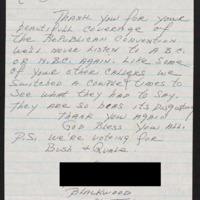 Thank you for your
beautifull coverage of
the Republican Convention
We'll never listen to A.B.C.
or N.B.C. again. Like some
of your other callers we
switched couple times to
see what they had to say.
They are so bias its disgusting
Thank you again
God Bless you all.
P.S. We're voting for
Bush & Quale
Blackwood